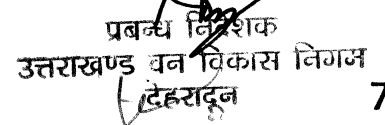 प्रबन्ध निदेशक
उत्तराखण्ड वन विकास निगम
देहरादून
7